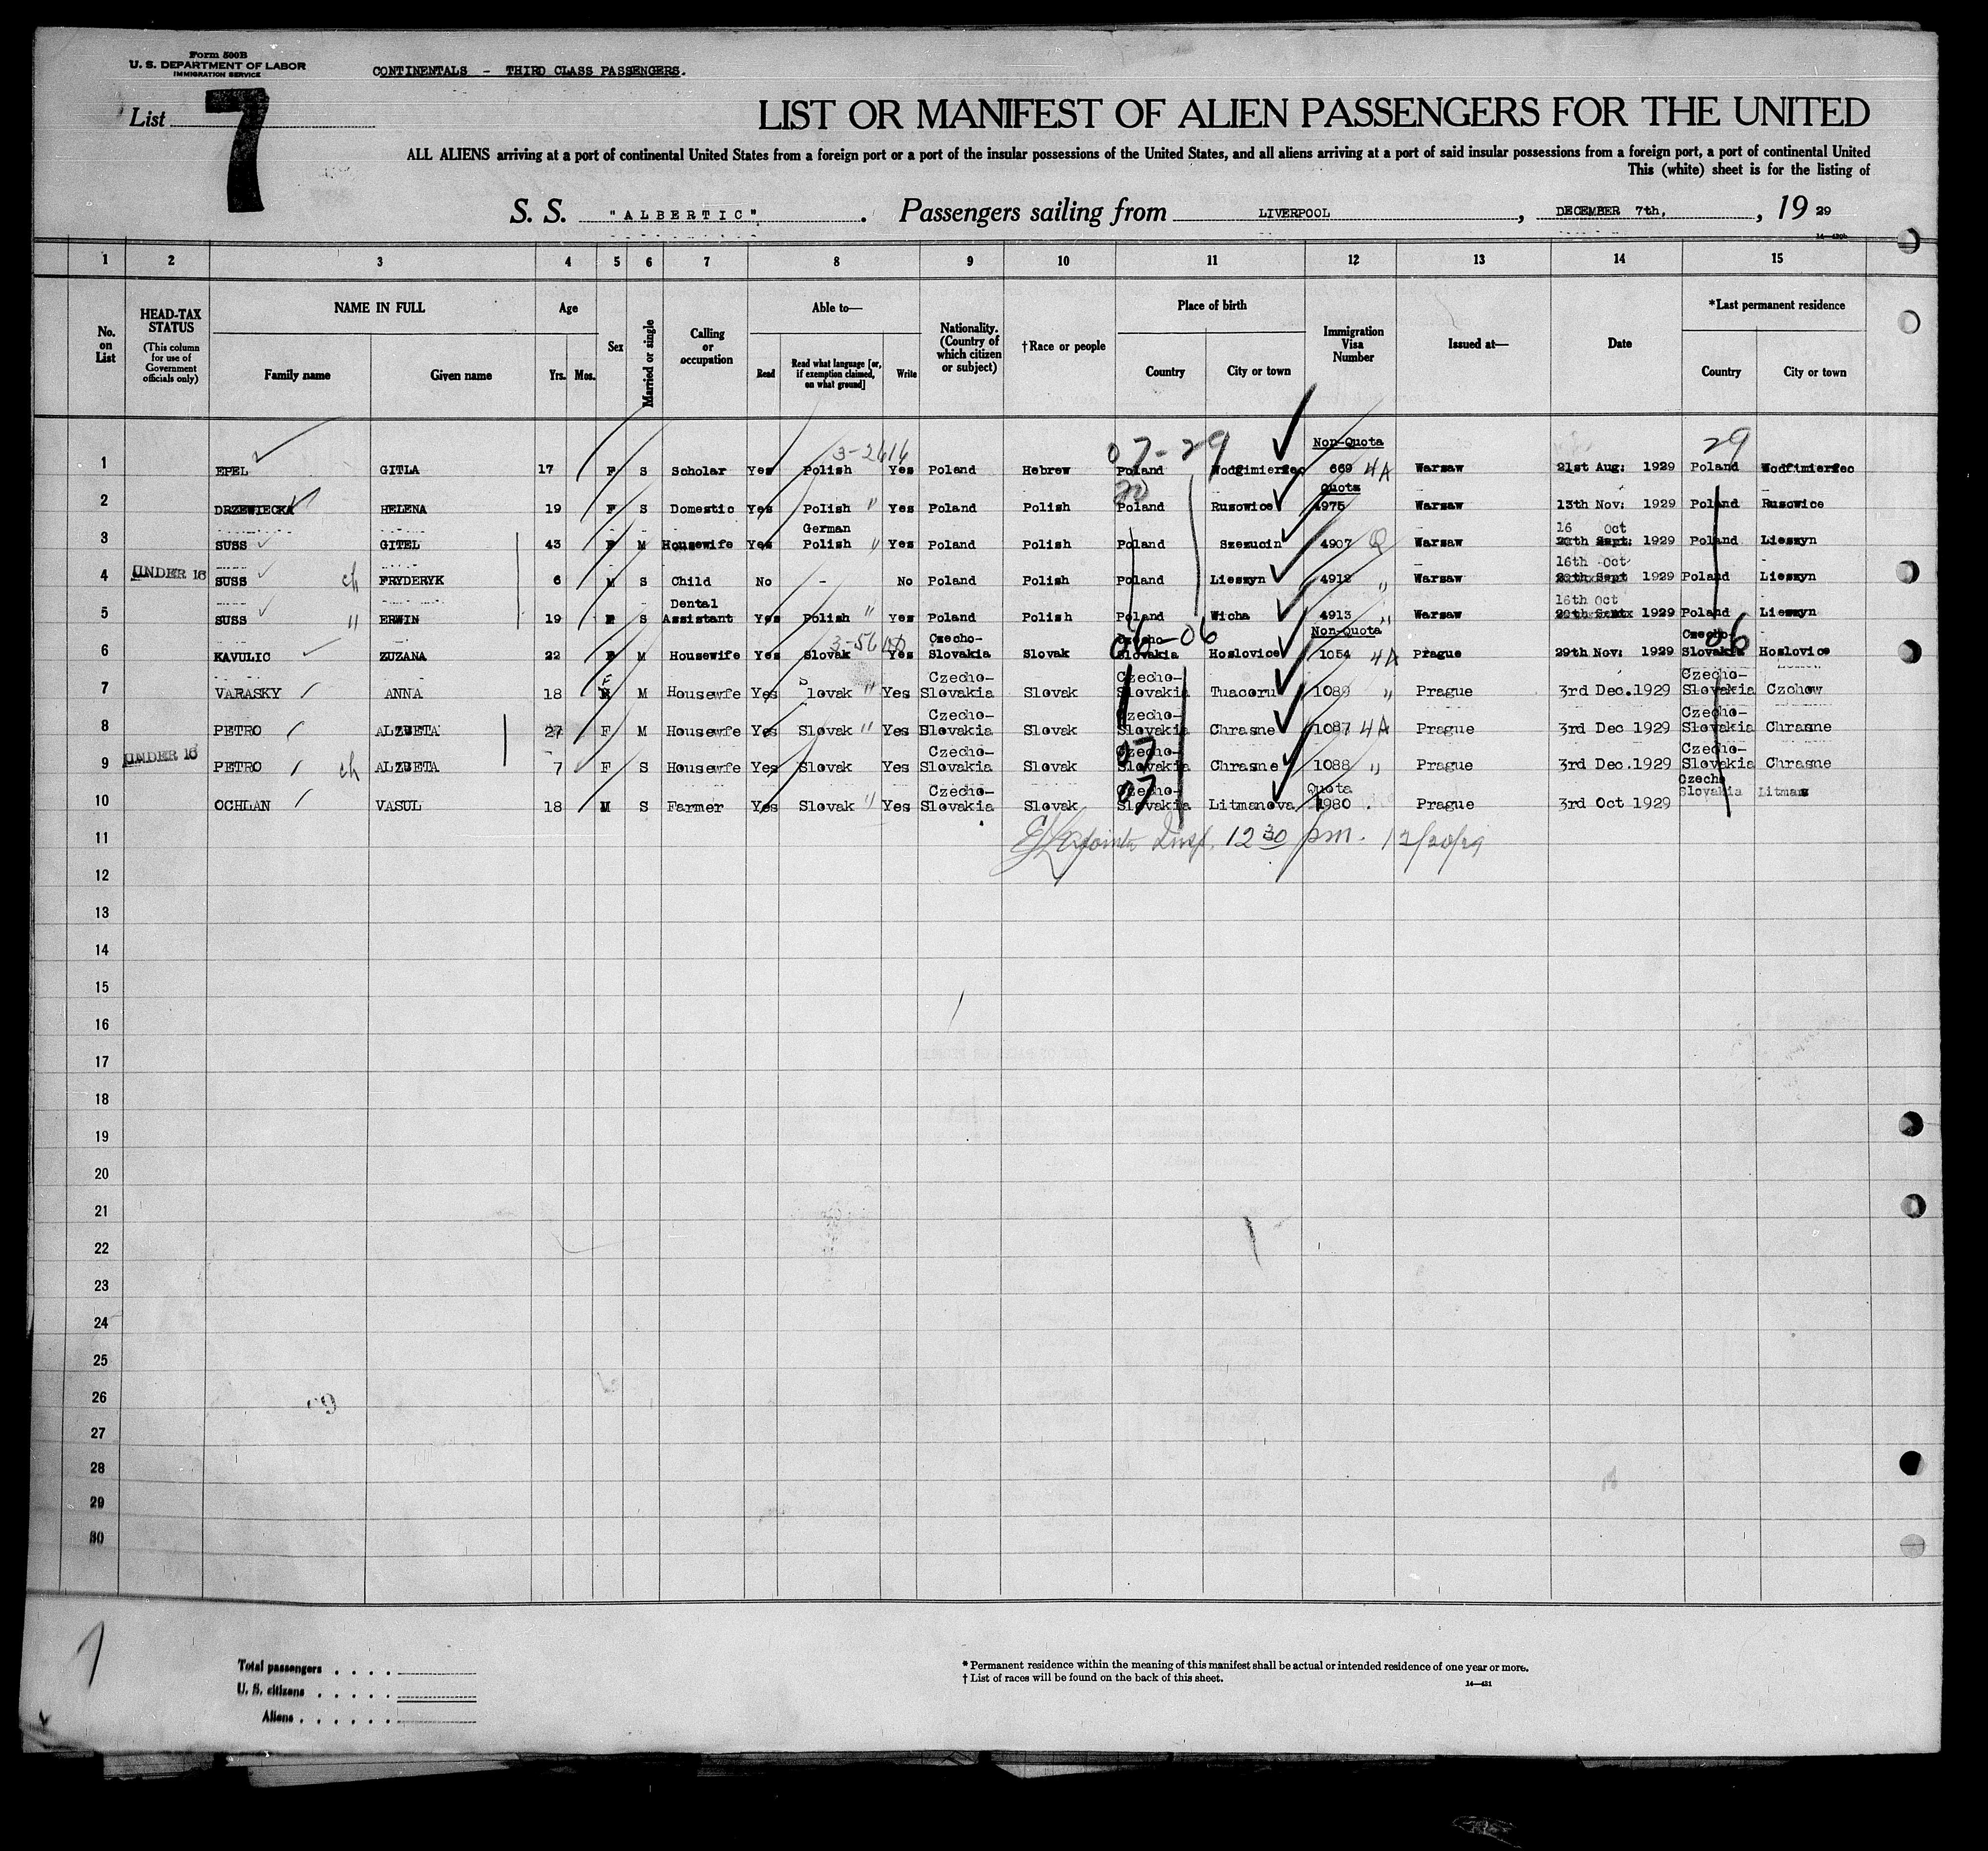 Form 500B
U. S. DEPARTMENT OF LABOR
IMMIGRATION SERVICE
CONTINENTALS - THIRD CLASS PASSENGERS.
List 7
LIST OR MANIFEST OF ALIEN PASSENGERS FOR THE UNITED
ALL ALIENS arriving at a port of continental United States from a foreign port or a port of the insular possessions of the United States, and all aliens arriving at a port of said insular possessions from a foreign port, a port of continental United
This (white) sheet is for the listing of
S. S. "ALBERTIC" . Passengers sailing from LIVERPOOL , DECEMBER 7th, , 19 29
1 2 3 4 5 6 7 8 9 10 11 12 13 14 15
No. on List
HEAD-TAX STATUS (This column for use of Government officials only)
NAME IN FULL
Family name Given name
Age
Yrs. Mos.
Sex
Married or single
Calling or occupation
Able to—
Read Read what language [or, if exemption claimed, on what ground] Write
Nationality. (Country of which citizen or subject)
†Race or people
Place of birth
Country City or town
Immigration Visa Number
Issued at—
Date
*Last permanent residence
Country City or town
07-29 Non-Quota 29
1 EPEL GITLA 17 F S Scholar Yes Polish Yes Poland Hebrew Poland 669 4A Warsaw 21st Aug: 1929 Poland
Quota
2 DRZEWIECKA HELENA 19 F S Domestic Yes Polish " Yes Poland Polish Poland Rusowice 4975 Warsaw 13th Nov: 1929 Poland Rusowice
German 16 Oct
3 SUSS GITEL 43 F M Housewife Yes Polish " Yes Poland Polish Poland Szezucin 4907 Q Warsaw 1929 Poland Lieszyn
16th Oct
4 UNDER 16 SUSS ch FRYDERYK 6 M S Child No - No Poland Polish Poland Lieszyn 4912 " Warsaw 1929 Poland Lieszyn
Dental 16th Oct
5 SUSS " ERWIN 19 S Assistant Yes Polish " Yes Poland Polish Poland Wicha 4913 " Warsaw 1929 Poland Lieszyn
3-56 Czecho- Czecho- 06 Non-Quota Czecho- 06
6 KAVULIC ZUZANA 22 F M Housewife Yes Slovak Yes Slovakia Slovak Slovakia Hoslovice 1054 4A Prague 29th Nov: 1929 Slovakia Hoslovice
F Czecho- Czecho- Czecho-
7 VARASKY ANNA 18 M Housewfe Yes Slovak " Yes Slovakia Slovak Slovakia Tuacoru 1089 " Prague 3rd Dec.1929 Slovakia Czohow
Czecho- Czecho- Czecho-
8 PETRO ALZBETA 27 F M Housewfe Yes Slovak " Yes Slovakia Slovak Slovakia Chrasne 1087 4A Prague 3rd Dec 1929 Slovakia Chrasne
Czecho- Czecho- Czecho-
9 UNDER 16 PETRO ch ALZBETA 7 F S Housewfe Yes Slovak Yes Slovakia Slovak Slovakia Chrasne 1088 " Prague 3rd Dec.1929 Slovakia Chrasne
Czecho- Czecho- 07 Quota Czecho
10 OCHLAN VASUL 18 M S Farmer Yes Slovak " Yes Slovakia Slovak Slovakia Litmanova 1980 Prague 3rd Oct 1929 Slovakia
11 Insp. 12 30 pm. 12/20/29
12
13
14
15
16
17
18
19
20
21
22
23
24
25
26
27
28
29
30
Total passengers . . . .
U. S. citizens . . . . .
Aliens . . . . . .
* Permanent residence within the meaning of this manifest shall be actual or intended residence of one year or more.
† List of races will be found on the back of this sheet.
14—431